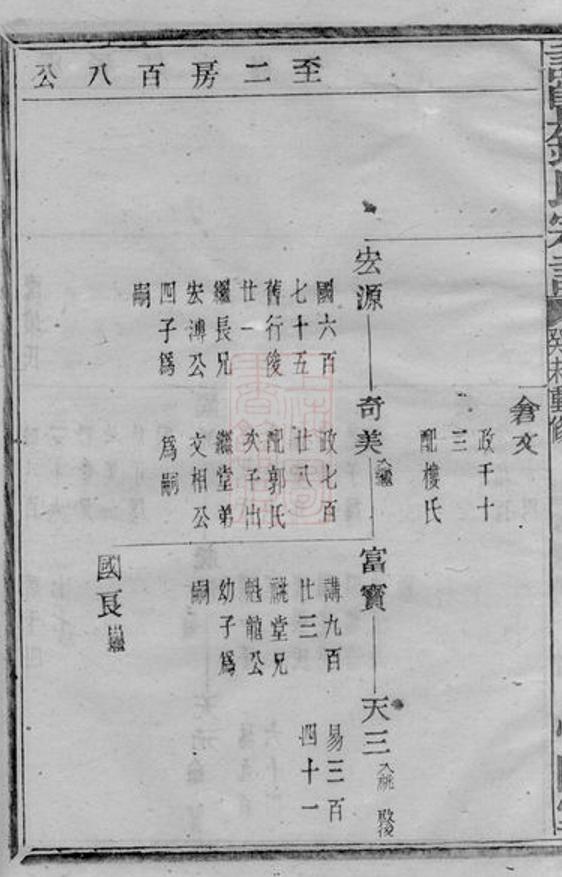 至二房百八公
倉文
政千十
三
配樓氏
宏源
國六百
七十五
舊行俊
廿一
繼長兄
宏溥公
四子爲
嗣
奇美入繼
政七百
廿八
配郭氏
次子出
繼堂弟
文相公
爲嗣
富寶
講九百
廿三
祧堂兄
魁龍公
幼子爲
嗣
國良出繼
天三入祧
易三百
四十一